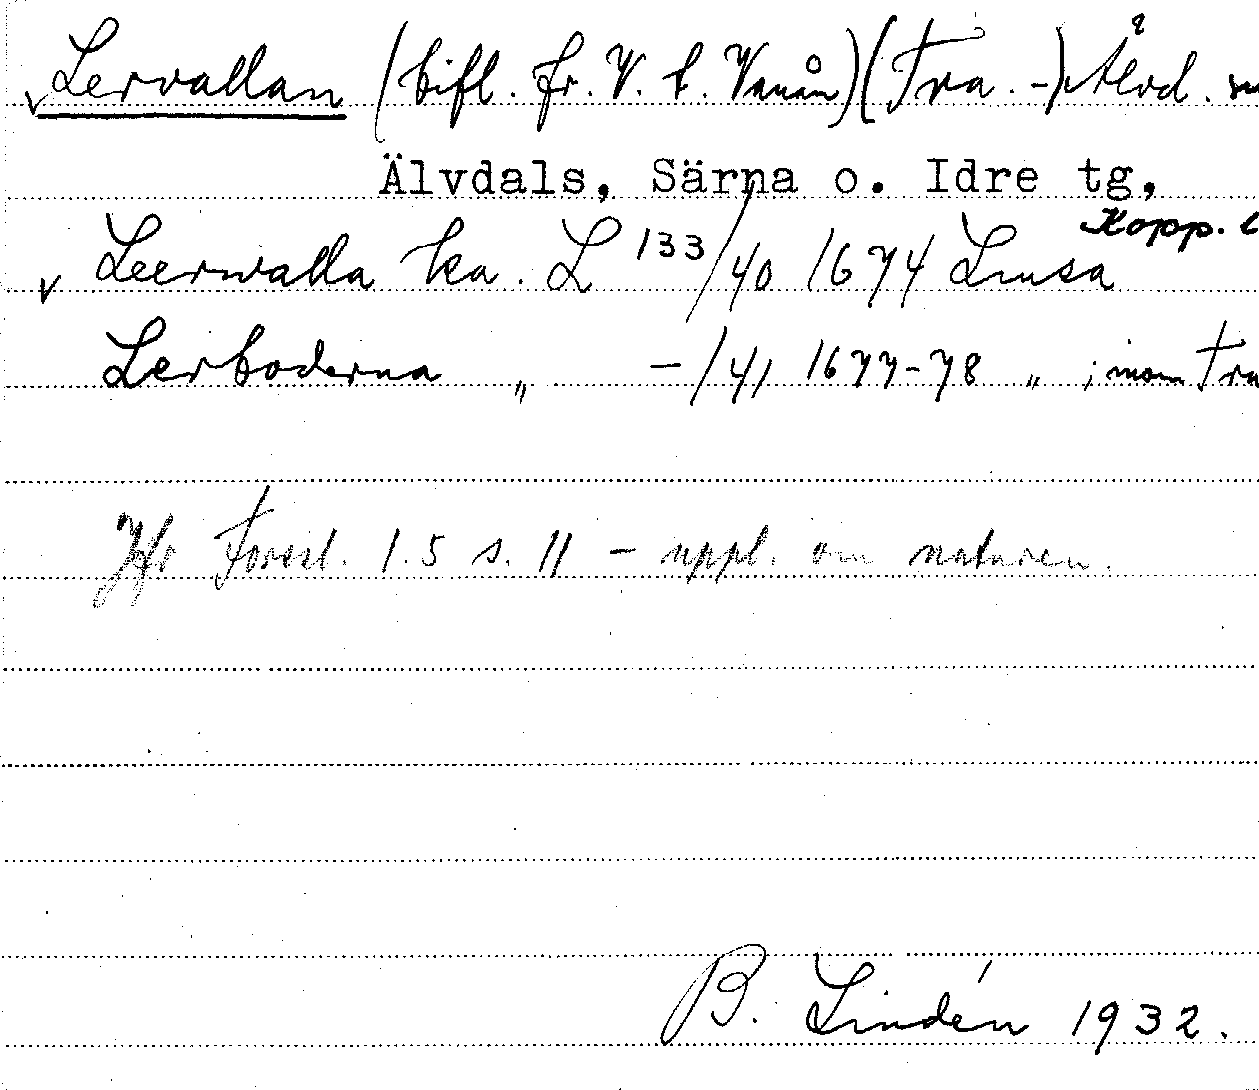 Lervallan (bifl. fr. V. t. Vanån) (Tra. -) Älvd.
Älvdals, Särna o. Idre tg,
Kopp.
Leerwalla ka. L 133/40 1674 Limsa
Lerboderna " -/41 1677-78 " ; inom Tra
Jfr Forssl. 1.5 s. 11 - uppl. om naturen.
B. Lindén 1932.